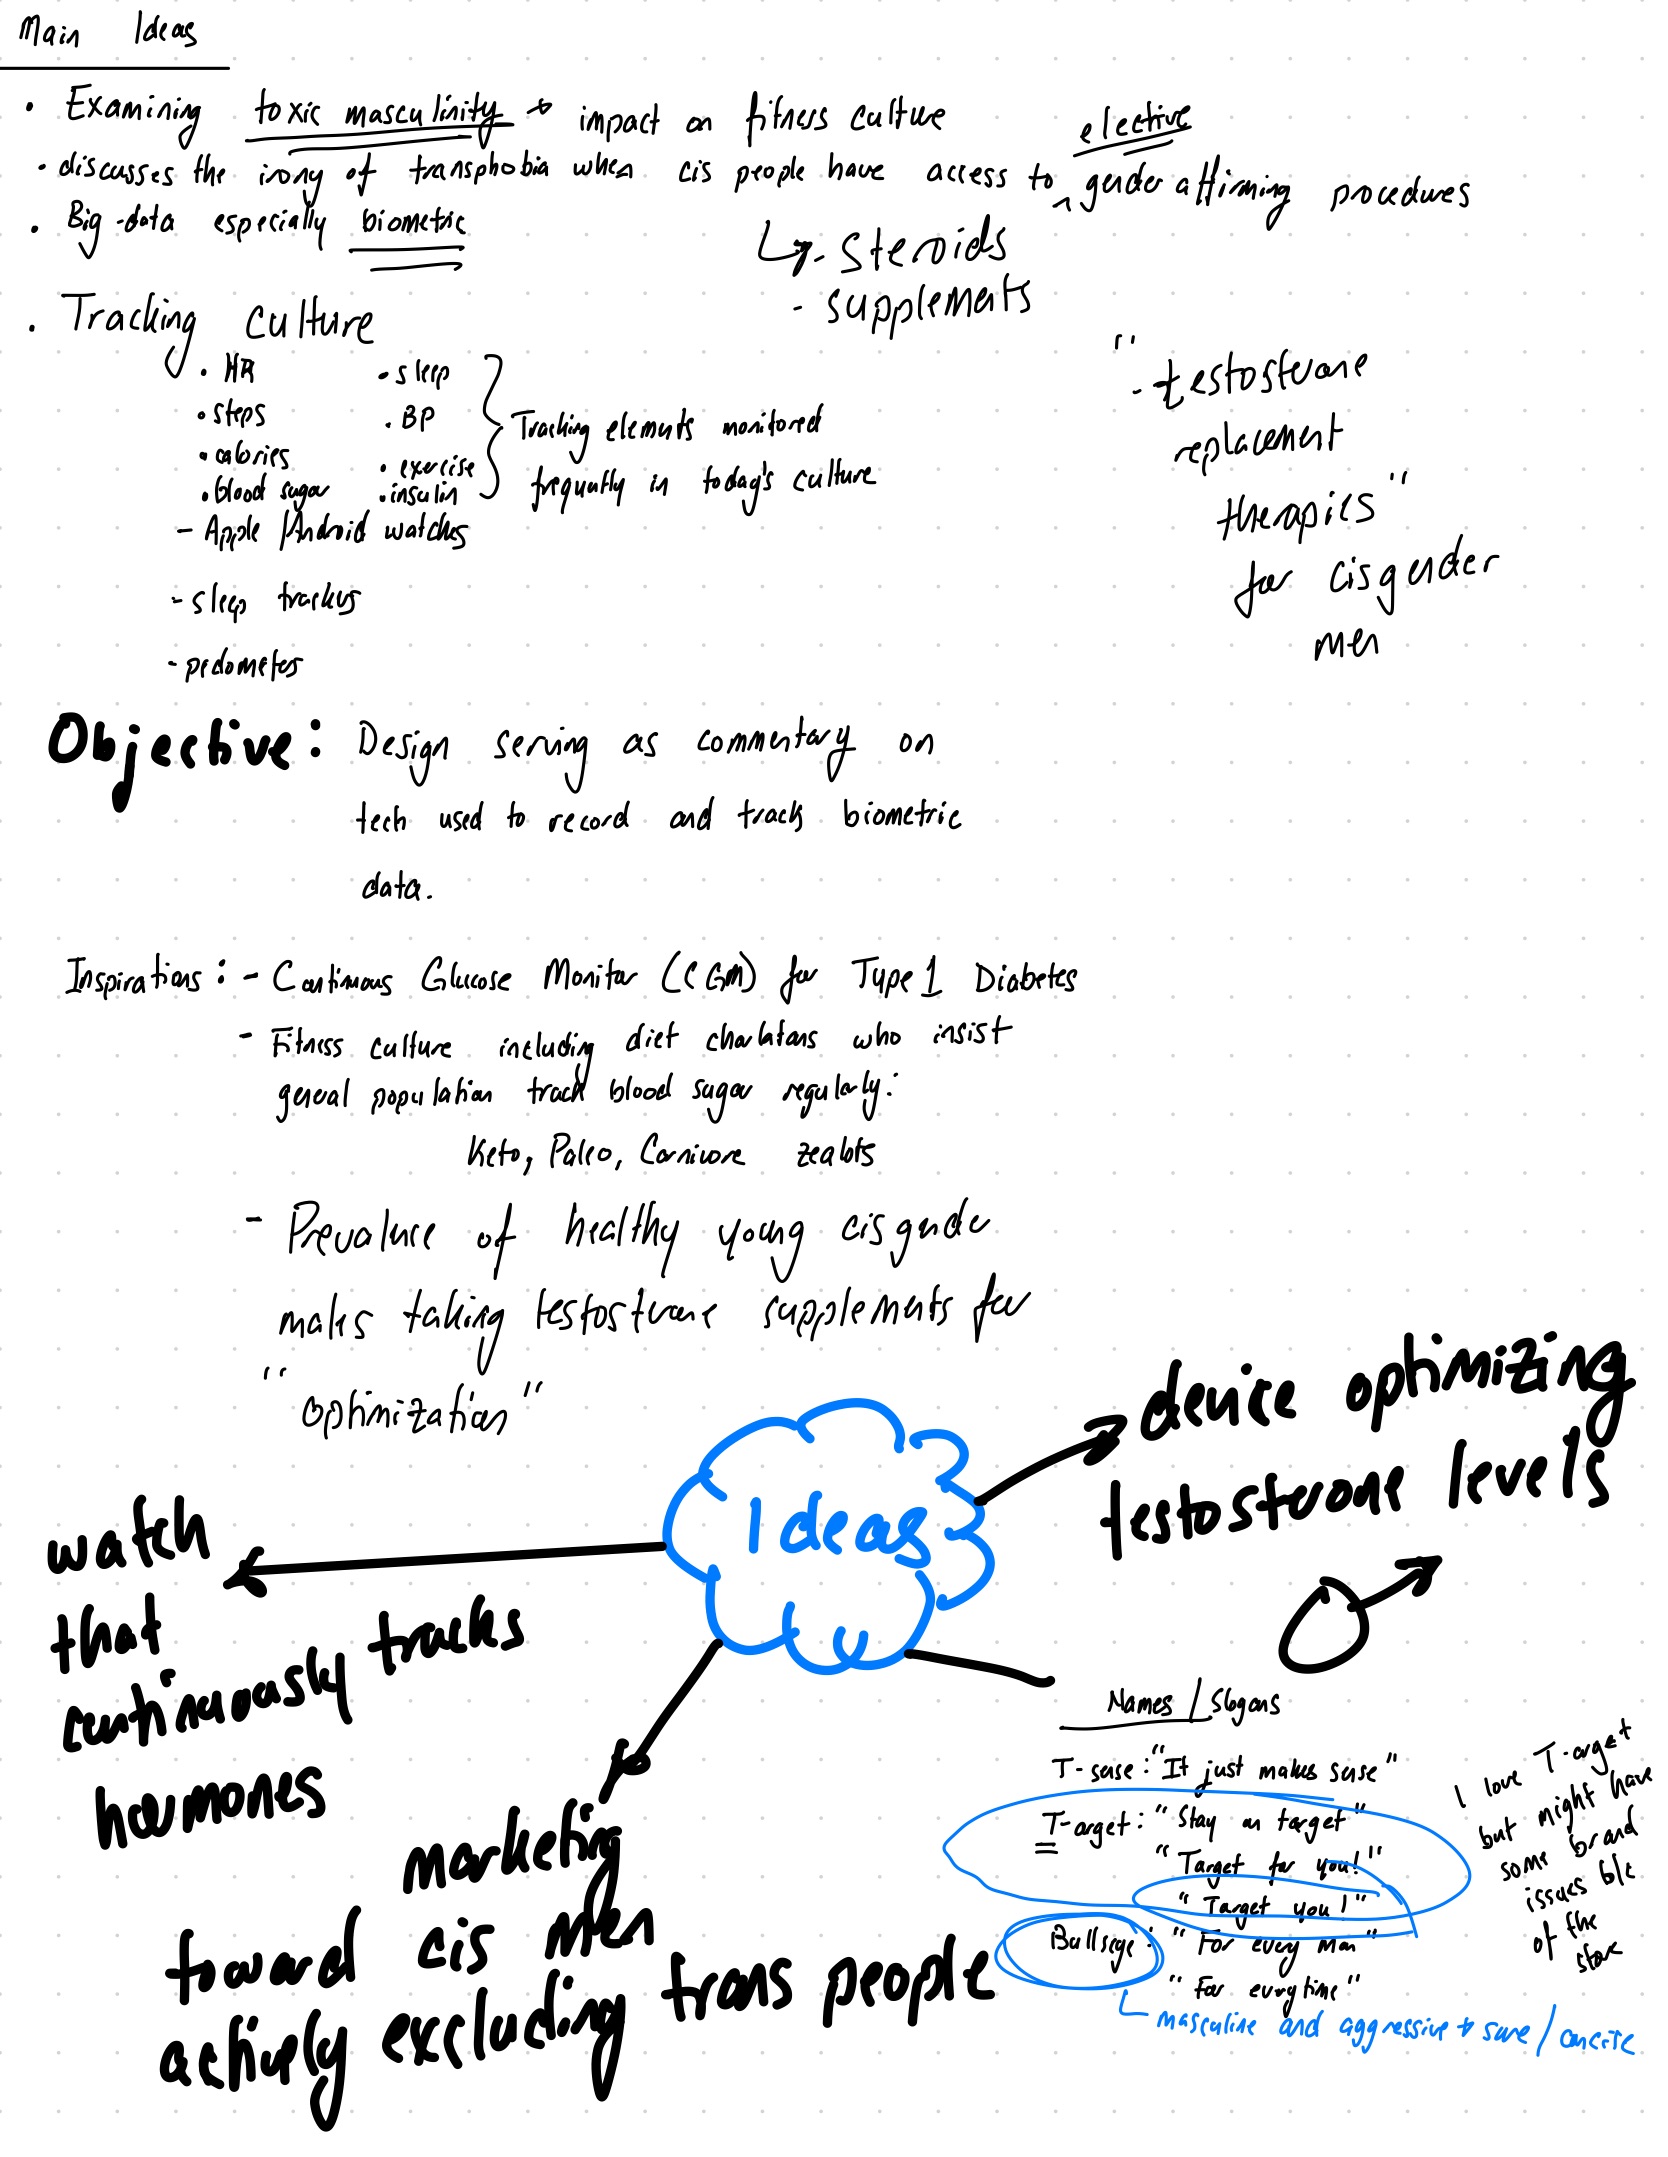 Main Ideas
• Examining toxic masculinity + impact on fitness culture
elective
• discusses the irony of transphobia when cis people have access to ^ gender affirming procedures
• Big-data especially biometric
- steroids
- supplements
• Tracking culture
• HR • sleep
• steps • BP
• calories • exercise
• blood sugar • insulin
Tracking elements monitored
frequently in today's culture
- "testosterone
replacement
therapies"
for cisgender
men
- Apple/Android watches
- sleep trackers
- pedometers
Objective: Design serving as commentary on
tech used to record and track biometric
data.
Inspirations: - Continuous Glucose Monitor (CGM) for Type 1 Diabetes
- Fitness culture including diet charlatans who insist
general population track blood sugar regularly:
Keto, Paleo, Carnivore zealots
- Prevalence of healthy young cisgender
males taking testosterone supplements for
"optimization"
Ideas
device optimizing
testosterone levels
watch
that
continuously tracks
hormones
marketing
toward cis men
actively excluding trans people
Names / Slogans
T-sense: "It just makes sense"
T-arget: "Stay on target"
"Target for you!"
"Target you!"
Bullseye: "For every man"
"For everytime"
masculine and aggressive +
I love T-arget
but might have
some brand
issues b/c
of the
store